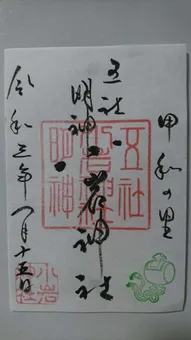 甲和の里
五社
明神
小岩神社
令和三年 月十五日
五社
小岩神社
明神
小岩
神社